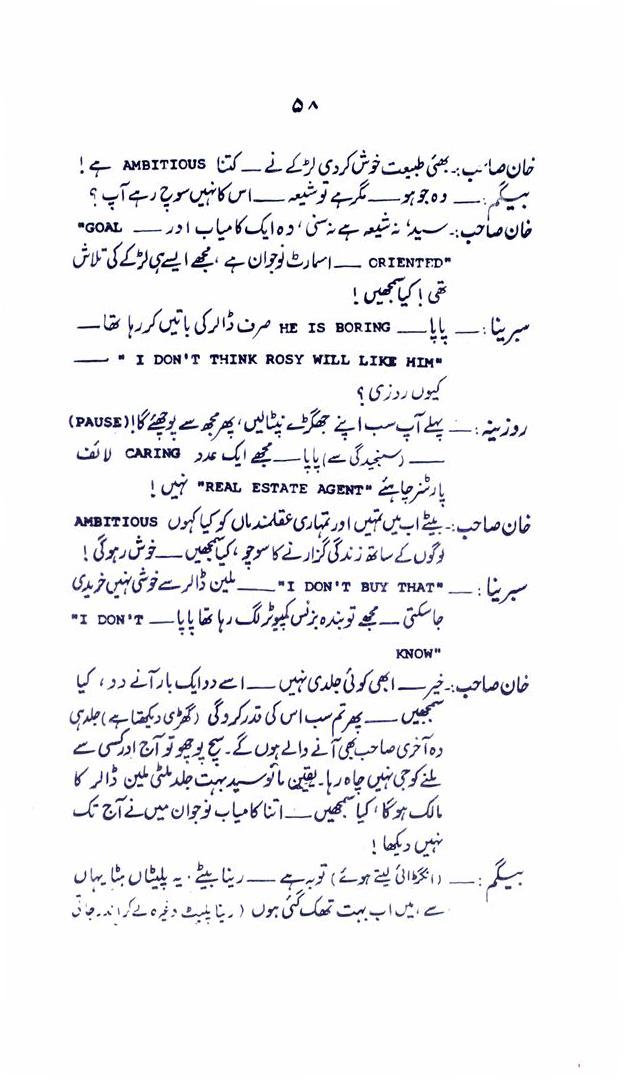 ۵۸
خان صاحب:۔ بھئی طبیعت خوش کردی لڑکے نے — کتنا AMBITIOUS ہے !
بیگم: — وہ جو ہو — مگر ہے تو شیعہ — اس کا نہیں سوچ رہے آپ ؟
خان صاحب:۔ سید، نہ شیعہ ہے نہ سنی، وہ ایک کامیاب اور — "GOAL
ORIENTED" — اسمارٹ نوجوان ہے ، مجھے ایسے ہی لڑکے کی تلاش
تھی ! کیا سمجھیں !
سبرینا: — پاپا — HE IS BORING صرف ڈالر کی باتیں کر رہا تھا —
"I DON'T THINK ROSY WILL LIKE HIM" —
کیوں روزی ؟
روزینہ: — پہلے آپ سب اپنے جھگڑے نپٹالیں، پھر مجھ سے پوچھئے گا! (PAUSE)
— (سنجیدگی سے) پاپا — مجھے ایک عدد CARING لائف
پارٹنر چاہئے "REAL ESTATE AGENT" نہیں !
خان صاحب:۔ بیٹے اب میں تمہیں اور تمہاری عقلمند ماں کو کیا کہوں AMBITIOUS
لوگوں کے ساتھ زندگی گزارنے کا سوچو، کیا سمجھیں — خوش رہو گی !
سبرینا: — "I DON'T BUY THAT" — ملین ڈالر سے خوشی نہیں خریدی
جاسکتی — مجھے تو بندہ بزنس کمپیوٹر لگ رہا تھا پاپا — "I DON'T
KNOW"
خان صاحب:۔ خیر — ابھی کوئی جلدی نہیں — اسے دو ایک بار آنے دو ، کیا
سمجھیں — پھر تم سب اس کی قدر کرو گی (گھڑی دیکھتا ہے) جلد ہی
وہ آخری صاحب بھی آنے والے ہوں گے۔ سچ پوچھو تو آج اور کسی سے
ملنے کو جی نہیں چاہ رہا۔ یقین مانو سید بہت جلد ملٹی ملین ڈالر کا
مالک ہوگا، کیا سمجھیں — اتنا کامیاب نوجوان میں نے آج تک
نہیں دیکھا !
بیگم: — (انگڑائی لیتے ہوئے) توبہ ہے — رینا بیٹے۔ یہ پلیٹاں ہٹا یہاں
سے ، میں اب بہت تھک گئی ہوں (رینا پلیٹ وغیرہ لے کر اندر جاتی